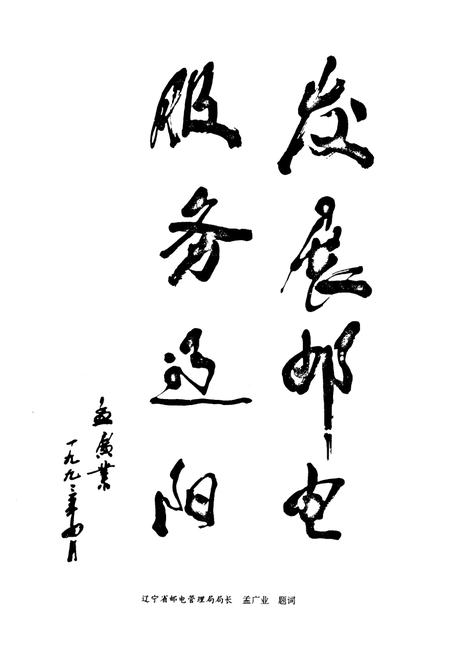 发展邮电
服务辽阳
孟广業
一九九三年四月
辽宁省邮电管理局局长 孟广业 题词